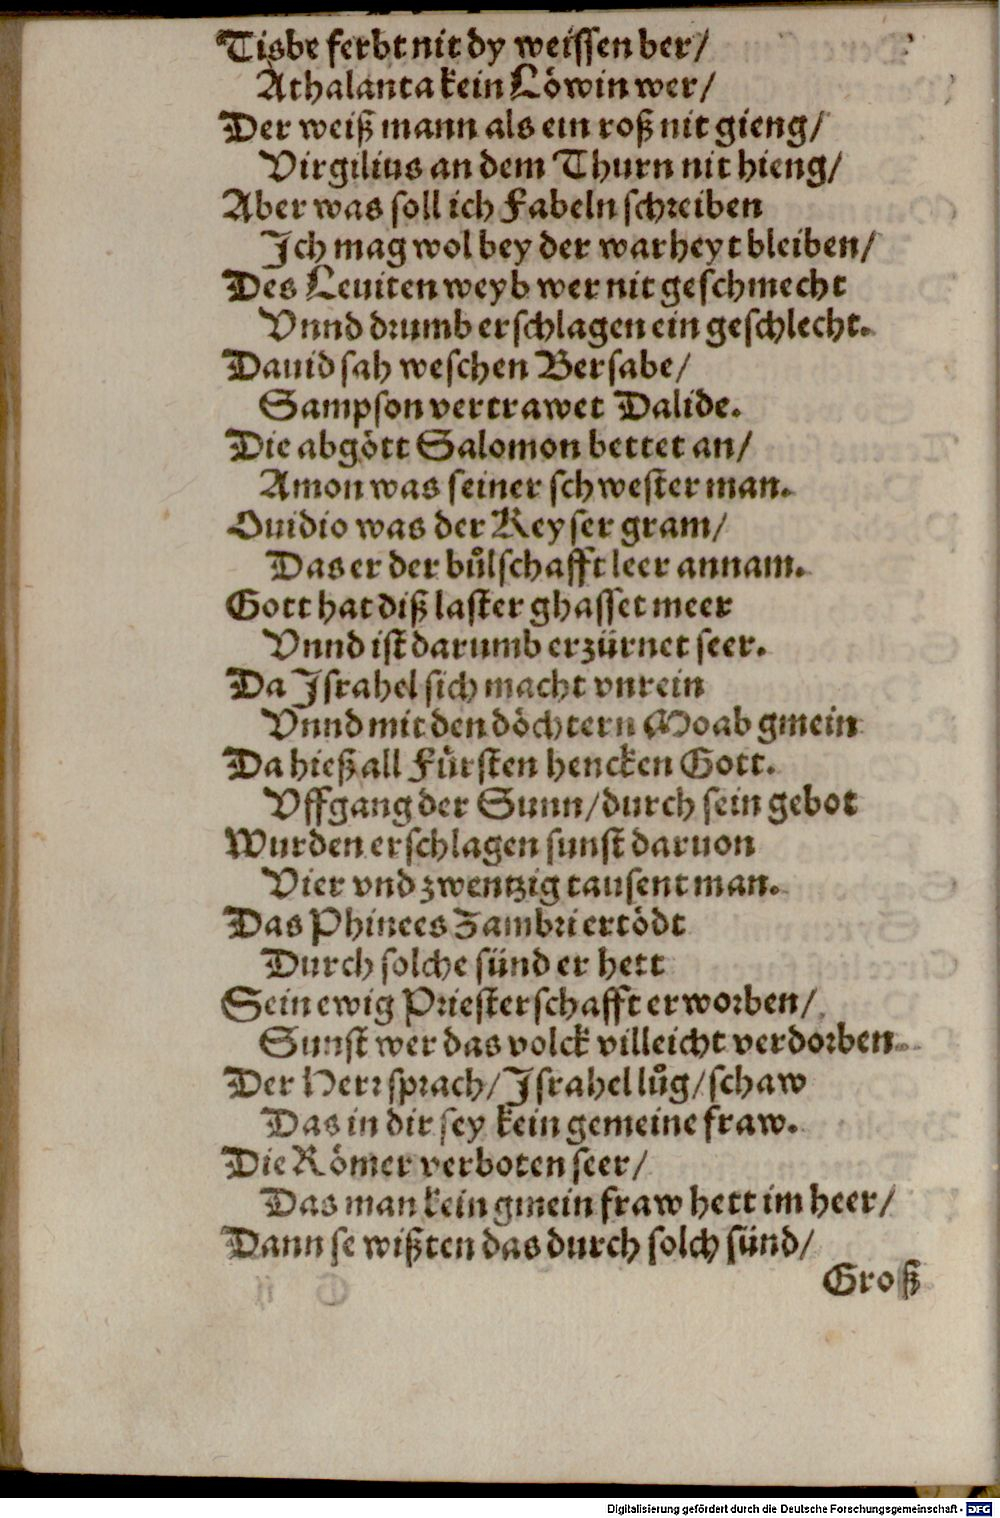 Tisbe ferbt nit dy weissen ber/
Athalanta kein Löwin wer/
Der weiß mann als ein roß nit gieng/
Virgilius an dem Thurn nit hieng/
Aber was soll ich Fabeln schreiben
Ich mag wol bey der warheyt bleiben/
Des Leuiten weyb wer nit geschmecht
Vnnd drumb erschlagen ein geschlecht.
Dauid sah weschen Bersabe/
Sampson vertrawet Dalide.
Die abgött Salomon bettet an/
Amon was seiner schwester man.
Ouidio was der Keyser gram/
Das er der bůlschafft leer annam.
Gott hat diß laster ghasset meer
Vnnd ist darumb erzürnet seer.
Da Israhel sich macht vnrein
Vnnd mit den döchtern Moab gmein
Da hieß all Fürsten hencken Gott.
Vffgang der Sunn/durch sein gebot
Wurden erschlagen sunst daruon
Vier vnd zwentzig tausent man.
Das Phinees Zambri ertödt
Durch solche sünd er hett
Sein ewig Priesterschafft erworben/
Sunst wer das volck villeicht verdorben.
Der Herr sprach/Israhel lůg/schaw
Das in dir sey kein gemeine fraw.
Die Römer verboten seer/
Das man kein gmein fraw hett im heer/
Dann se wißten das durch solch sünd/
Groß
Digitalisierung gefördert durch die Deutsche Forschungsgemeinschaft - DFG